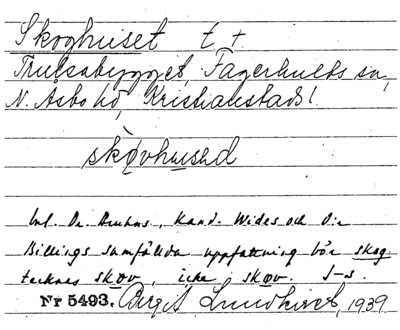 Skoghuset t +
Trulsabygget, Fagerhults sn,
N. Åsbo hd, Kristianstads l.
skǫvhusəd
Enl. Dr. Bruhns, Kand. Wides och Dr
Billings samfällda uppfattning bör skog
tecknas skǫv, icke skøv. J-s.
Nr 5493. Birgit Lundkvist, 1939